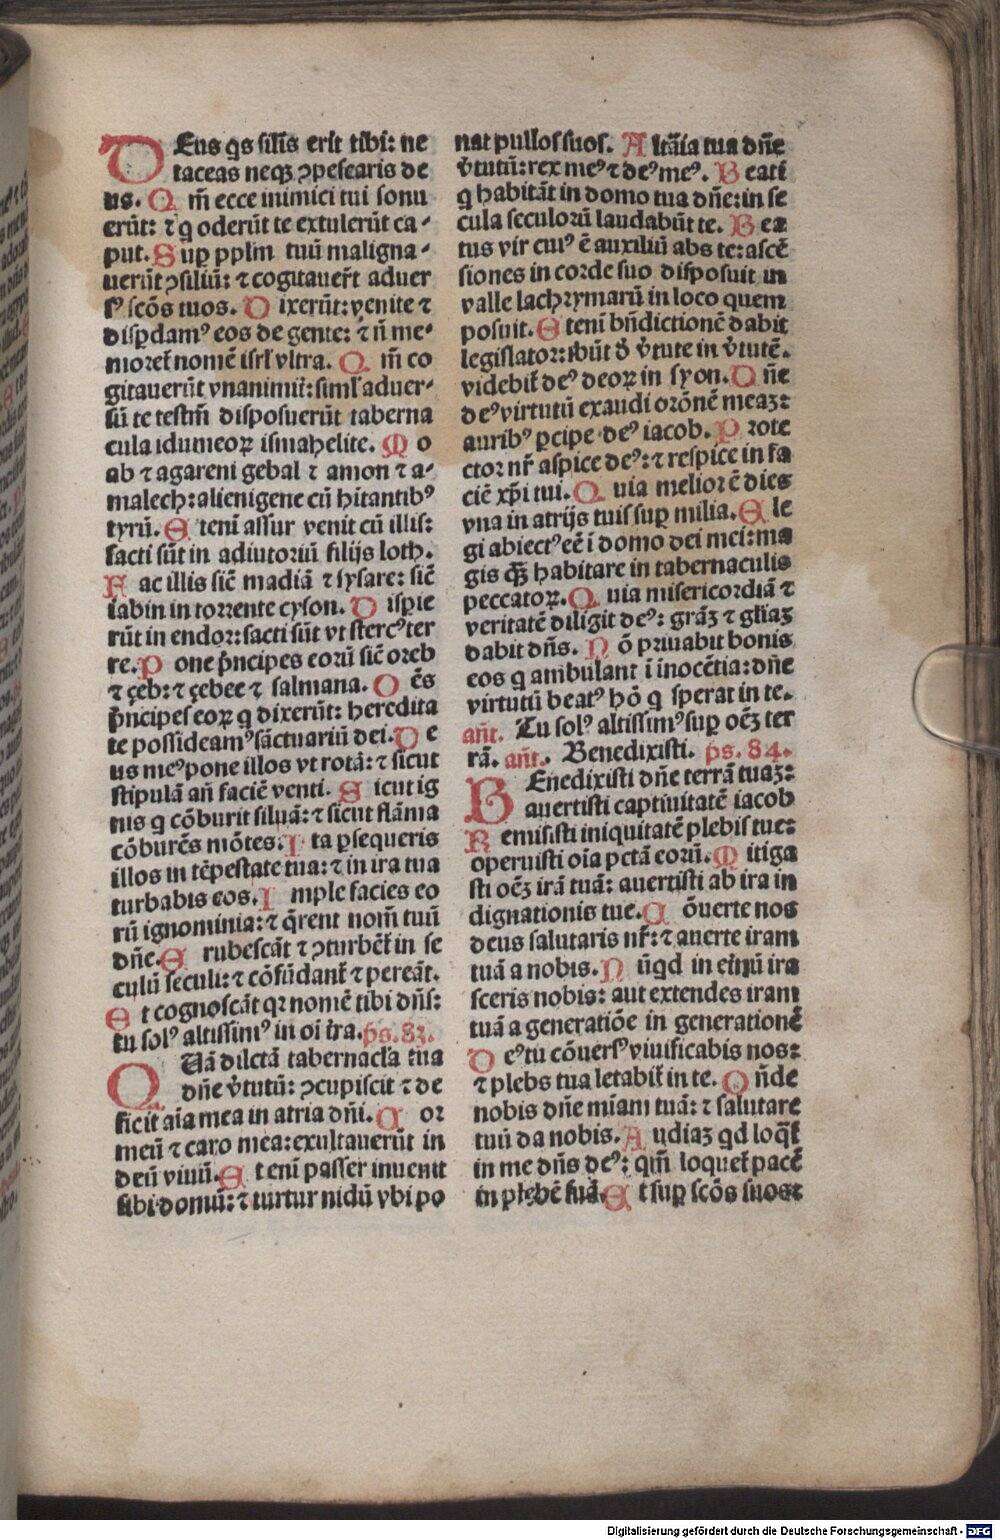 DEus qs silis erit tibi: ne
taceas neqz ꝯpescaris de
us. Qm̃ ecce inimici tui sonu
erũt: ⁊ q oderũt te extulerũt ca-
put. Sup pplm tuũ maligna-
uerũt ꝯsiliũ: ⁊ cogitauer̃t aduer
sꝰ scõs tuos. Dixerũt: venite ⁊
disꝑdamꝰ eos de gente: ⁊ nõ me-
moret̃ nomẽ isrl̃ vltra. Qm̃ co
gitauerũt vnanimit̃: siml̃ aduer-
sũ te testm̃ disposuerũt taberna
cula idumeoꝝ ismahelite. Mo
ab ⁊ agareni gebal ⁊ amon ⁊ a-
malech: alienigene cũ hitantibꝰ
tyrũ. Etenĩ assur venit cũ illis:
facti sũt in adiutoriũ filijs loth.
Fac illis sicẽ madiã ⁊ sysare: sicẽ
iabin in torrente cyson. Disperie
rũt in endor: facti sũt vt stercꝰ ter
re. Pone p̃ncipes eorũ sicẽ oreb
⁊ çeb: ⁊ çebee ⁊ salmana. Oẽs
p̃ncipes eoꝝ q dixerũt: heredita
te possideamꝰ sãctuariũ dei. De
us meꝰ pone illos vt rotã: ⁊ sicut
stipulã añ faciẽ venti. Sicut ig
nis q cõburit siluã: ⁊ sicut flãma
cõburẽs mõtes. Ita ꝑsequeris
illos in tẽpestate tua: ⁊ in ira tua
turbabis eos. Imple facies eo
rũ ignominia: ⁊ q̃rent nom̃ tuũ
dñe. Erubescãt ⁊ ꝯturbẽt̃ in se
culũ seculi: ⁊ cõfũdant̃ ⁊ pereãt.
Et cognoscãt qꝛ nomẽ tibi dñs:
tu solꝰ altissimꝰ in oi t̃ra. ps. 83.
QUã dilctã tabernacl̃a tua
dñe v̓tutũ: ꝯcupiscit ⁊ de
ficit aĩa mea in atria dñi. Cor
meũ ⁊ caro mea: exultauerũt in
deũ viuũ. Etenĩ passer inuenit
sibi domũ: ⁊ turtur nidũ vbi po
nat pullos suos. Altãia tua dñe
v̓tutũ: rex meꝰ ⁊ deꝰ meꝰ. Beati
q habitãt in domo tua dñe: in se
cula seculorũ laudabũt te. Bea
tus vir cuiꝰ ẽ auxiliũ abs te: ascẽ
siones in corde suo disposuit in
valle lachrymarũ in loco quem
posuit. Etenĩ bñdictionẽ dabit
legislator: ibũt d̓ v̓tute in v̓tutẽ.
videbit̃ deꝰ deoꝝ in syon. Dñe
deꝰ virtutũ exaudi orõnẽ meaꝫ:
auribꝰ ꝑcipe deꝰ iacob. Prote
ctor nr̃ aspice deꝰ: ⁊ respice in fa
ciẽ xp̃i tui. Quia melior ẽ dies
vna in atrijs tuis suꝑ milia. Ele
gi abiectꝰ eẽ ĩ domo dei mei: ma
gis q̃ꝫ habitare in tabernaculis
peccatoꝝ. Quia misericordiã ⁊
veritatẽ diligit deꝰ: grãꝫ ⁊ gl̃iaꝫ
dabit dñs. Nõ priuabit bonis
eos q ambulant ĩ inocẽtia: dñe
virtutũ beatꝰ hõ q sperat in te.
añt. Tu solꝰ altissimꝰ suꝑ oẽꝫ ter
rã. añt. Benedixisti. ps. 84.
BEnedixisti dñe terrã tuaꝫ:
auertisti captiuitatẽ iacob
Remisisti iniquitatẽ plebis tue:
operuisti oĩa pctã eorũ. Mitiga
sti oẽꝫ irã tuã: auertisti ab ira in
dignationis tue. Cõuerte nos
deus salutaris nr̃: ⁊ auerte iram
tuã a nobis. Nũqd in et̃nũ ira
sceris nobis: aut extendes iram
tuã a generatiõe in generationẽ
Deꝰ tu cõuersꝰ viuificabis nos:
⁊ plebs tua letabit̃ in te. Oñde
nobis dñe miam tuã: ⁊ salutare
tuũ da nobis. Audiaꝫ qd loq̃t̃
in me dñs deꝰ: qm̃ loquet̃ pacẽ
in plebẽ suã. Et suꝑ scõs suos:
Digitalisierung gefördert durch die Deutsche Forschungsgemeinschaft - DFG